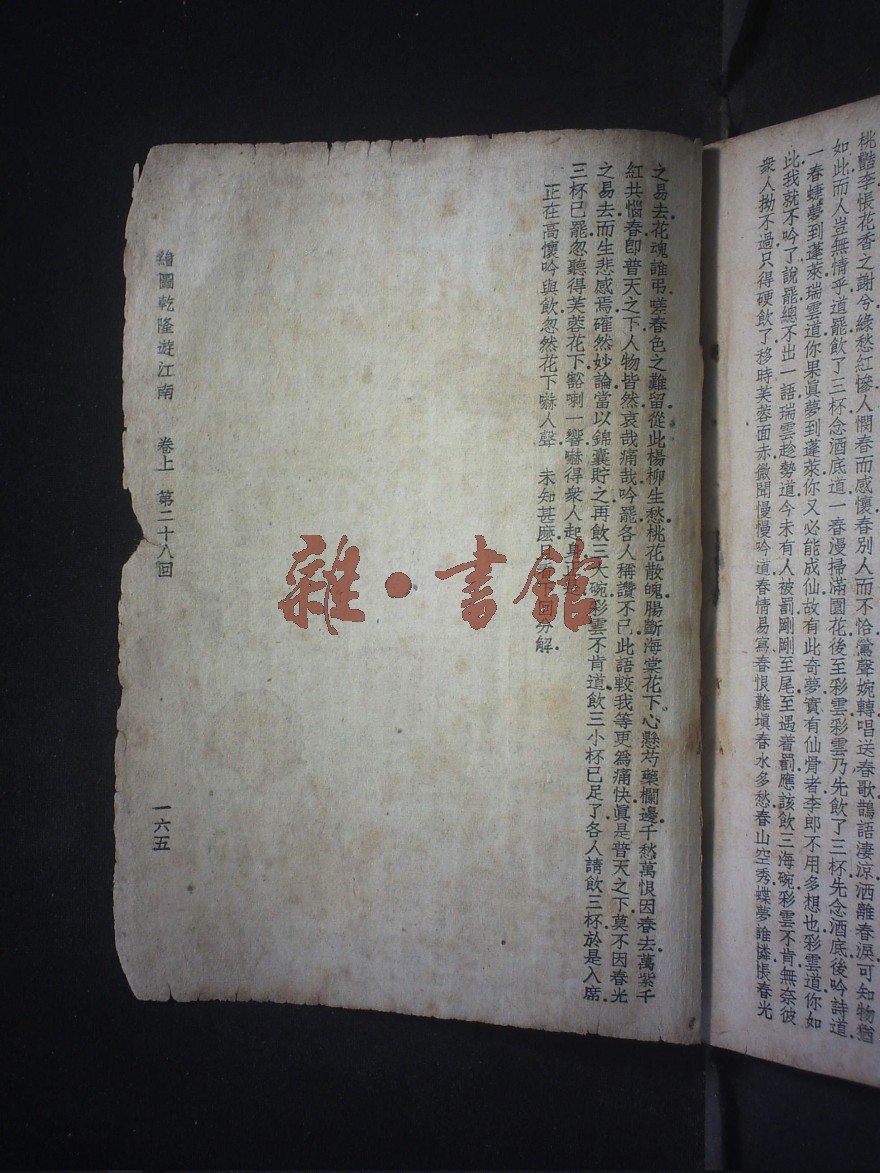 桃豔李悵花香之謝兮綠愁紅慘人憫春而感懷春別人而不恰鶯聲婉轉唱送春歌鵲語淒涼洒離春淚可知物猶
如此而人豈無情乎道罷飲了三杯念酒底道一春漫掃滿園花後至彩雲彩雲乃先飲了三杯先念酒底後吟詩道
一春蜨夢到蓬萊瑞雲道你果眞夢到蓬萊你又必能成仙故有此奇夢實有仙骨者李郎不用多想也彩雲道你如
此我就不吟了說罷總不出一語瑞雲趁勢道今未有人被罰剛剛至尾至遇着罰應該飲三海碗彩雲不肯無奈彼
衆人拗不過只得硬飲了移時芙蓉面赤微聞慢慢吟道春情易寫春恨難塡春水多愁春山空秀蝶夢誰憐悵春光
之易去花魂誰弔嗟春色之難留從此楊柳生愁桃花散魄腸斷海棠花下心縣芍藥欄邊千愁萬恨因春去萬紫千
紅共惱春卽普天之下人物皆然哀哉痛哉吟罷各人稱讚不已此語較我等更爲痛快眞是普天之下莫不因春光
之易去而生悲感焉確然妙論當以錦囊貯之再飲三大碗彩雲不肯道飲三小杯已足了各人請飲三杯於是入席
三杯已罷忽聽得芙蓉花下豁喇一響嚇得衆人起身
正在高懷吟與飲忽然花下嚇人聲 未知甚麽 回分解
繪圖乾隆遊江南 卷上 第二十八回 一六五
雜·書館